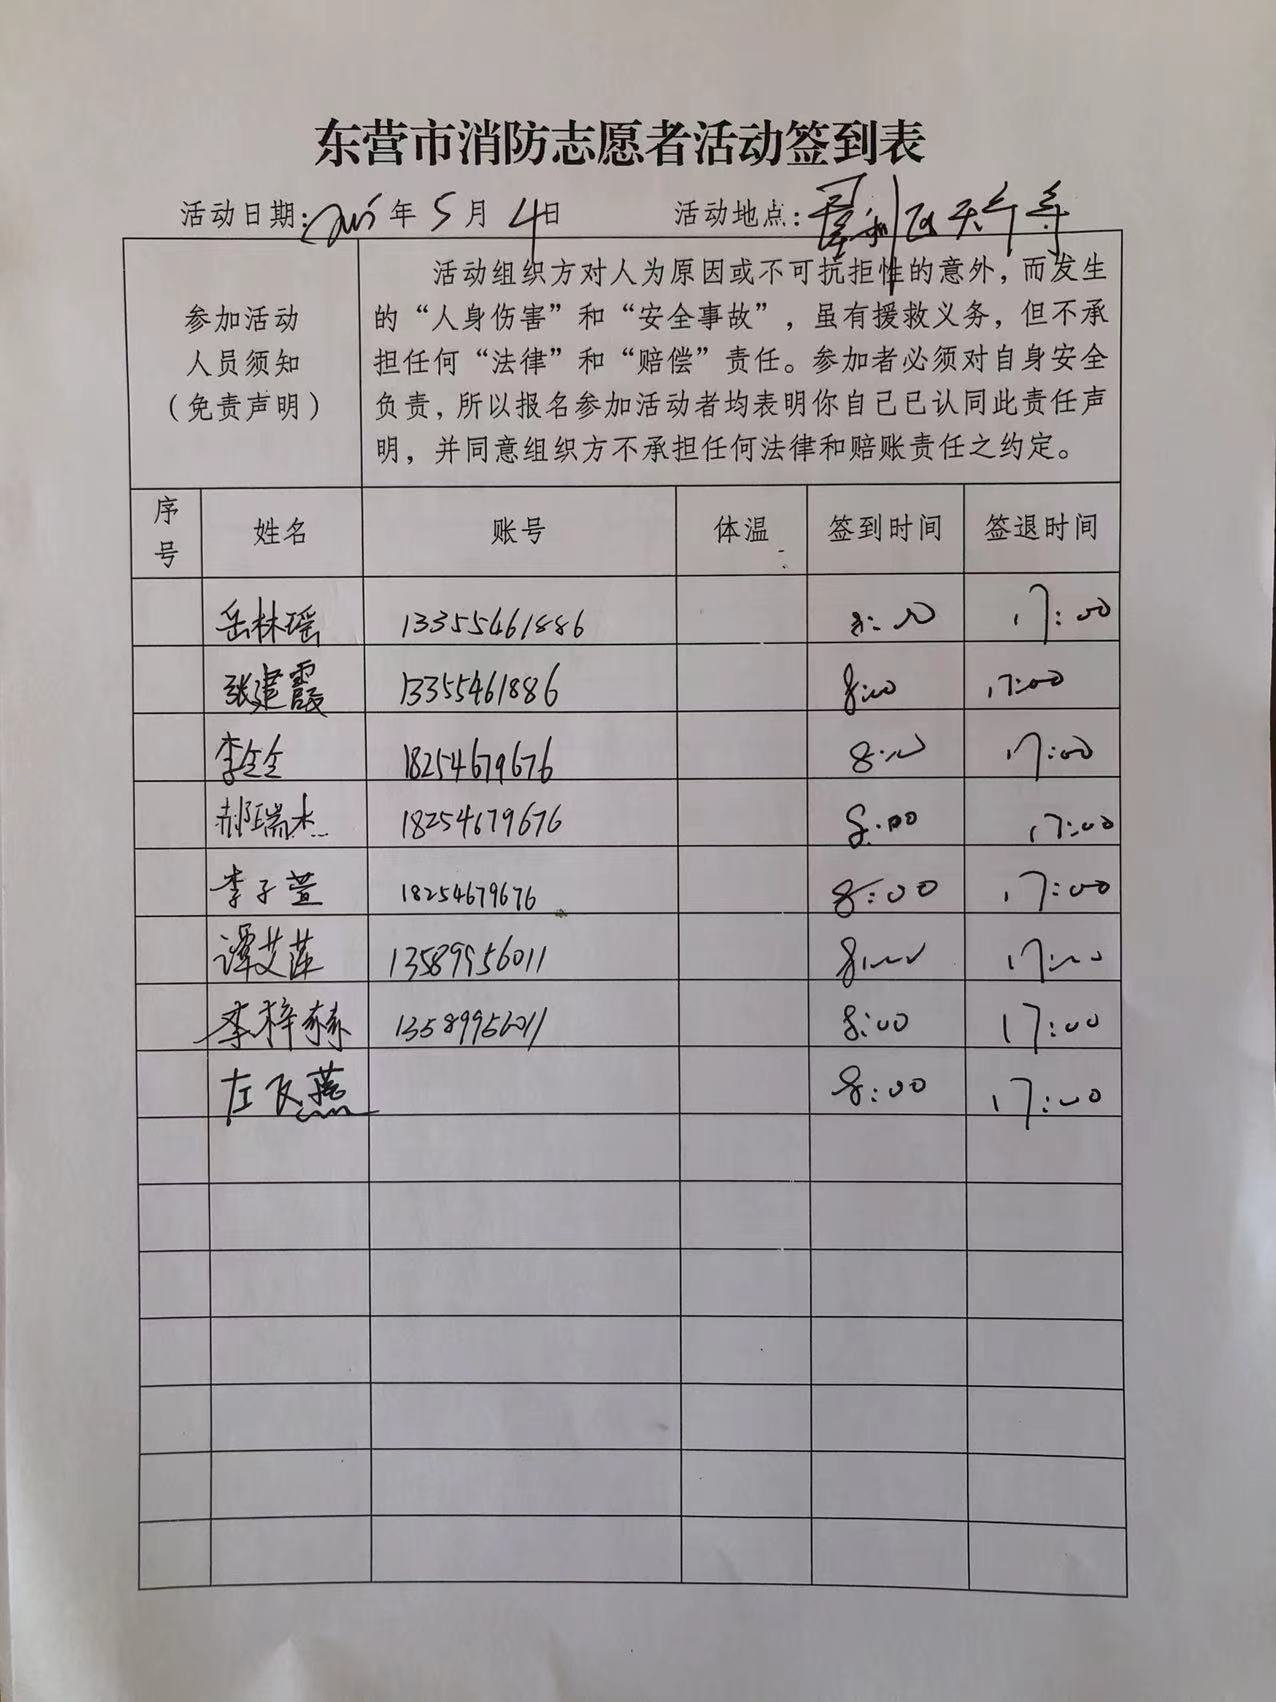 东营市消防志愿者活动签到表
活动日期:2025年5月4日 活动地点:垦利区天宁寺
参加活动
人员须知
(免责声明)
活动组织方对人为原因或不可抗拒性的意外，而发生
的“人身伤害”和“安全事故”，虽有援救义务，但不承
担任何“法律”和“赔偿”责任。参加者必须对自身安全
负责，所以报名参加活动者均表明你自己已认同此责任声
明，并同意组织方不承担任何法律和赔账责任之约定。
序号 姓名 账号 体温 签到时间 签退时间
岳林瑶 13355461886 8:00 17:00
张建霞 13355461886 8:00 17:00
李全全 18254679676 8:00 17:00
郝瑞杰 18254679676 8:00 17:00
李子萱 18254679676 8:00 17:00
谭艾萍 13589956011 8:00 17:00
李梓赫 13589956011 8:00 17:00
左飞燕 8:00 17:00